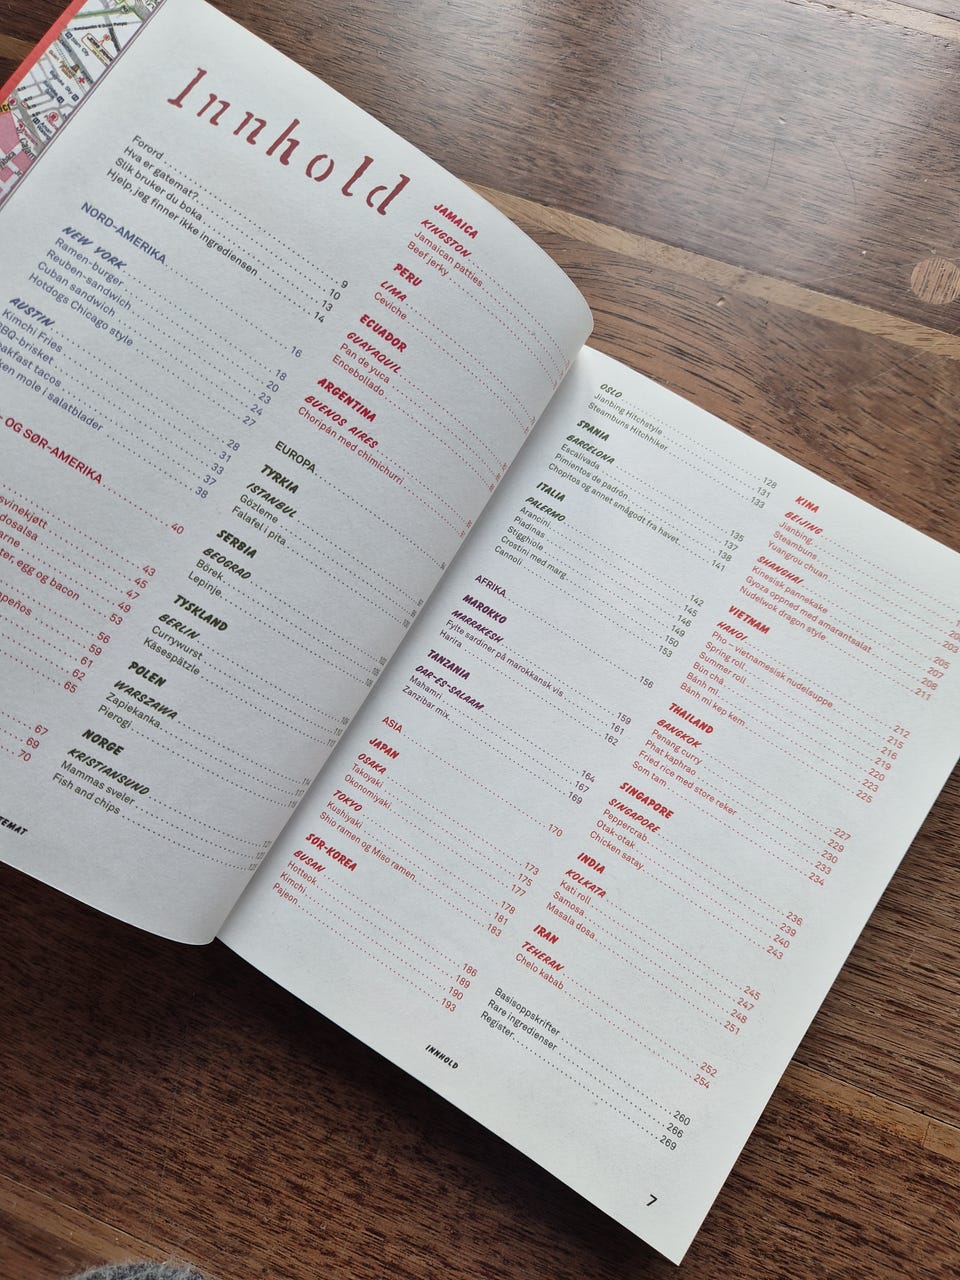 Innhold
Forord 9
Hva er gatemat? 10
Slik bruker du boka 13
Hjelp, jeg finner ikke ingrediensen 14
NORD-AMERIKA 16
NEW YORK 18
Ramen-burger 20
Reuben-sandwich 23
Cuban sandwich 24
Hotdogs Chicago style 27
AUSTIN 28
Kimchi Fries 31
BBQ-brisket 33
tacos 37
mole i salatblader 38
OG SØR-AMERIKA 40
43
45
47
egg og bacon 49
53
56
59
61
62
65
67
69
70
JAMAICA
KINGSTON
Jamaican patties
Beef jerky
PERU
LIMA
Ceviche
ECUADOR
GUAYAQUIL
Pan de yuca
Encebollado
ARGENTINA
BUENOS AIRES
Choripán med chimichurri
EUROPA
TYRKIA
ISTANBUL
Gözleme
Falafel i pita
SERBIA
BEOGRAD
Börek
Lepinje
TYSKLAND
BERLIN
Currywurst
Käsespätzle
POLEN
WARSZAWA
Zapiekanka
Pierogi
NORGE
KRISTIANSUND
Mammas sveler
Fish and chips
OSLO 128
Jianbing Hitchstyle 131
Steambuns Hitchhiker 133
SPANIA
BARCELONA 135
Escalivada 137
Pimientos de padrón 138
Chopitos og annet smågodt fra havet 141
ITALIA
PALERMO 142
Arancini 145
Piadinas 146
Stigghiole 149
Crostini med marg 150
Cannoli 153
AFRIKA 156
MAROKKO
MARRAKESH 159
Fylte sardiner på marokkansk vis 161
Harira 162
TANZANIA
DAR-ES-SALAAM 164
Mahamri 167
Zanzibar mix 169
ASIA 170
JAPAN
OSAKA 173
Takoyaki 175
Okonomiyaki 177
TOKYO 178
Kushiyaki 181
Shio ramen og Miso ramen 183
SØR-KOREA
BUSAN 186
Hotteok 189
Kimchi 190
Pajeon 193
KINA
BEIJING
Jianbing
Steambuns
Yuangrou chuan 203
SHANGHAI 205
Kinesisk pannekake 207
Gyoza oppned med amarantsalat 208
Nudelwok dragon style 211
VIETNAM
HANOI 212
Pho – vietnamesisk nudelsuppe 215
Spring roll 216
Summer roll 219
Bún chả 220
Bánh mì 223
Bánh mì kep kem 225
THAILAND
BANGKOK 227
Penang curry 229
Phat kaphrao 230
Fried rice med store reker 233
Som tam 234
SINGAPORE
SINGAPORE 236
Peppercrab 239
Otak-otak 240
Chicken satay 243
INDIA
KOLKATA 245
Kati roll 247
Samosa 248
Masala dosa 251
IRAN
TEHERAN 252
Chelo kabab 254
Basisoppskrifter 260
Rare ingredienser 266
Register 269
INNHOLD
7